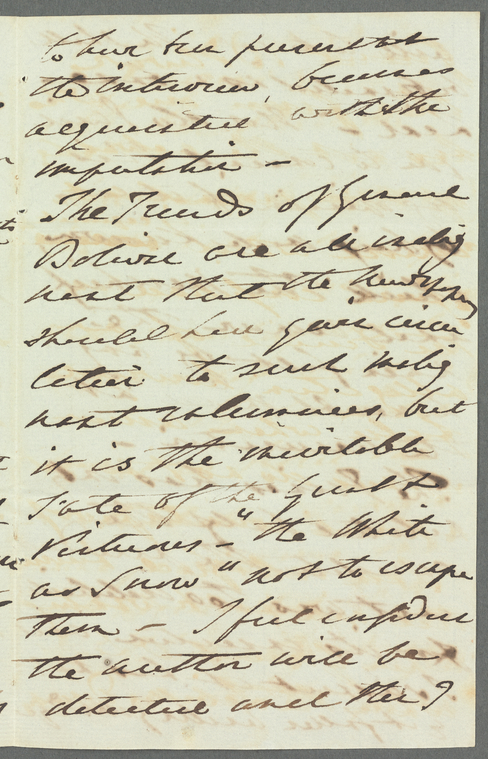 to have been present at
the interview, becomes
acquainted with the
imputation —
The Friends of General
Bolivar are all indig
nant that the Newspapers
should have given circu
lation to such malig
nant calumnies, but
it is the inevitable
fate of the Great &
Virtuous — "the White
as Snow" not to escape
them — I feel confident
the author will be
detected and the